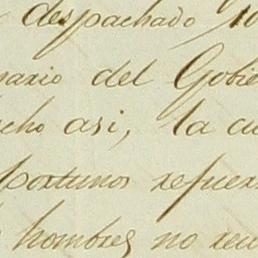 despachado
nario del Gobie
cho asi, la cu
portunos refuer
hombres no reu